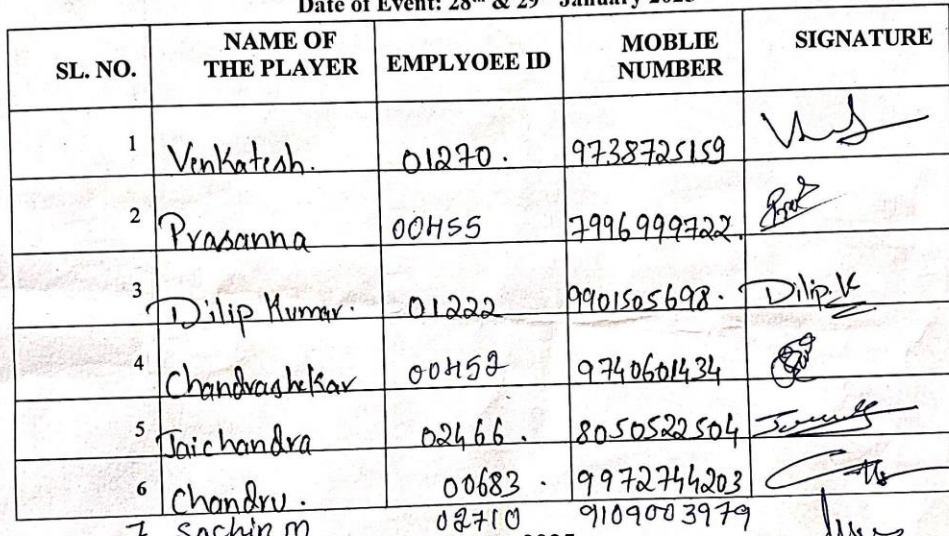 Date of Event: 28th & 29th January 2025
SL. NO. NAME OF THE PLAYER EMPLYOEE ID MOBLIE NUMBER SIGNATURE
1 Venkatesh. 01270. 9738725159
2 Prasanna 00455 7996999722.
3 Dilip Kumar. 01222 9901505698. Dilip.K
4 Chandrashekar 00452 9740601434
5 Jaichandra 02466. 8050522504
6 Chandru. 00683. 9972744203
7 Sachin m 02710 9109003979